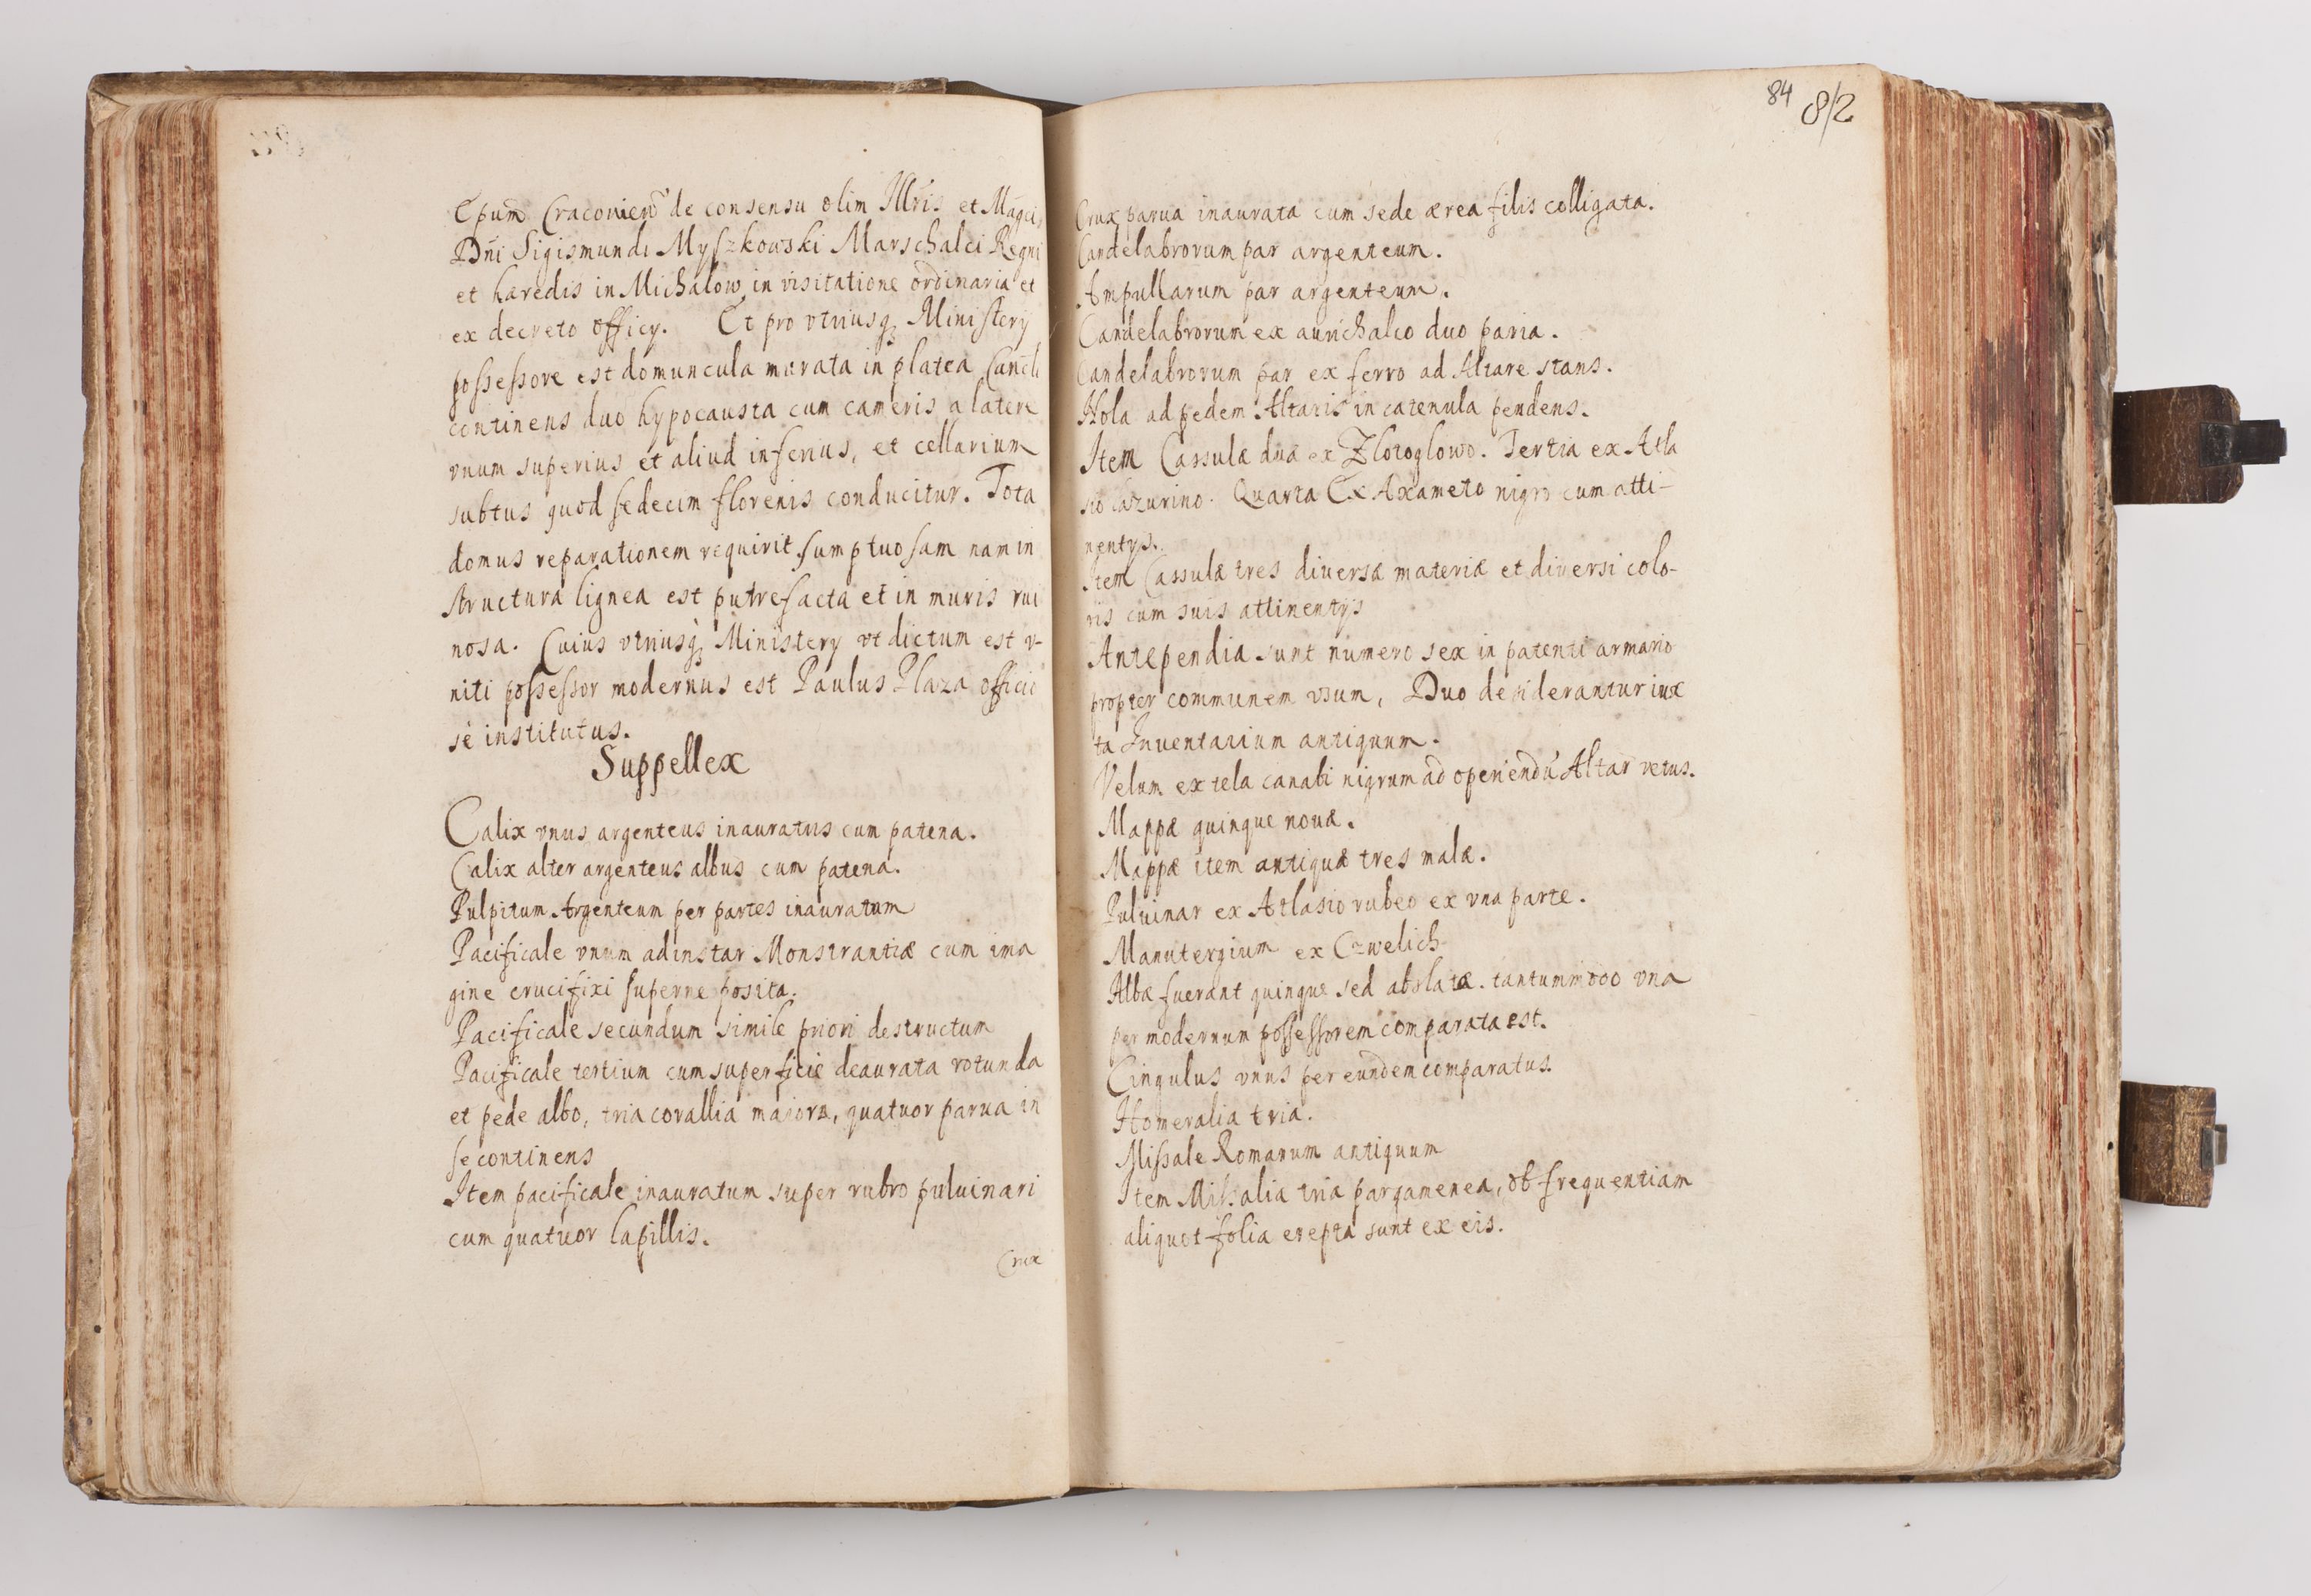 Epum̃ Cracovien̄ de consensu olim Illris et Magci
Dñi Sigismundi Myszkowski Marschalci Regni
et hæredis in Michalow in visitatione ordinaria et
ex decreto officÿ. Et pro vtriusq₃ Ministerÿ
possessore est domuncula murata in platea
continens duo hypocausta cum cameris a latere
vnum superius et aliud inferius, et cellarium
subtus quod sedecim florenis conducitur. Tota
domus reparationem requirit sumptuosam nam in
structura lignea est putrefacta et in muris rui
nosa. Cuius vtriusq₃ Ministery vt dictum est v-
niti possessor modernus est Paulus Plaza officio
sè institutus.
Suppellex
Calix vnus argenteus inauratus cum patena.
Calix alter argenteus albus cum patena.
Pulpitum Argenteum per partes inauratum
Pacificale vnum adinstar Monstrantiæ cum ima
gine crucifixi superne posita.
Pacificale secundum simile priori destructum
Pacificale tertium cum superficie deaurata rotunda
et pede albo, tria corallia majora, quatuor parua in
se continens
Item pacificale inauratum super rubro puluinari
cum quatuor lapillis.
Crux
84 812
Crux parua inaurata cum sede ærea filis colligata.
Candelabrorum par argenteum.
Ampullarum par argenteum.
Candelabrorum ex aurichalco duo paria.
Candelabrorum par ex ferro ad Altare stans.
Nola ad pedem Altaris in catenula pendens.
Item Cassulæ duæ ex Zlotoglowo. Tertia ex Atla
sio lazurino. Quarta Ex Axameto nigro cum atti-
nentÿs.
Item Cassulæ tres diuersæ materiæ et diuersi colo-
ris cum suis attinentÿs
Antependia sunt numero sex in patenti armario
propter communem vsum, Duo desiderantur iux
ta Inuentarium antiquum.
Velum ex tela canabi nigrum ad operiendū Altar vetus.
Mappæ quinque nouæ.
Mappæ item antiquæ tres malæ.
Puluinar ex Atlasio rubeo ex vna parte.
Manutergium ex Czwelich
Albæ fuerant quinque sed ablatæ. tantummodo vna
per modernum possessorem comparata est.
Cingulus vnus per eundem comparatus.
Homeralia tria.
Missale Romanum antiquum
Item Missalia tria pargamenea, ob frequentiam
aliquot folia erepta sunt ex eis.